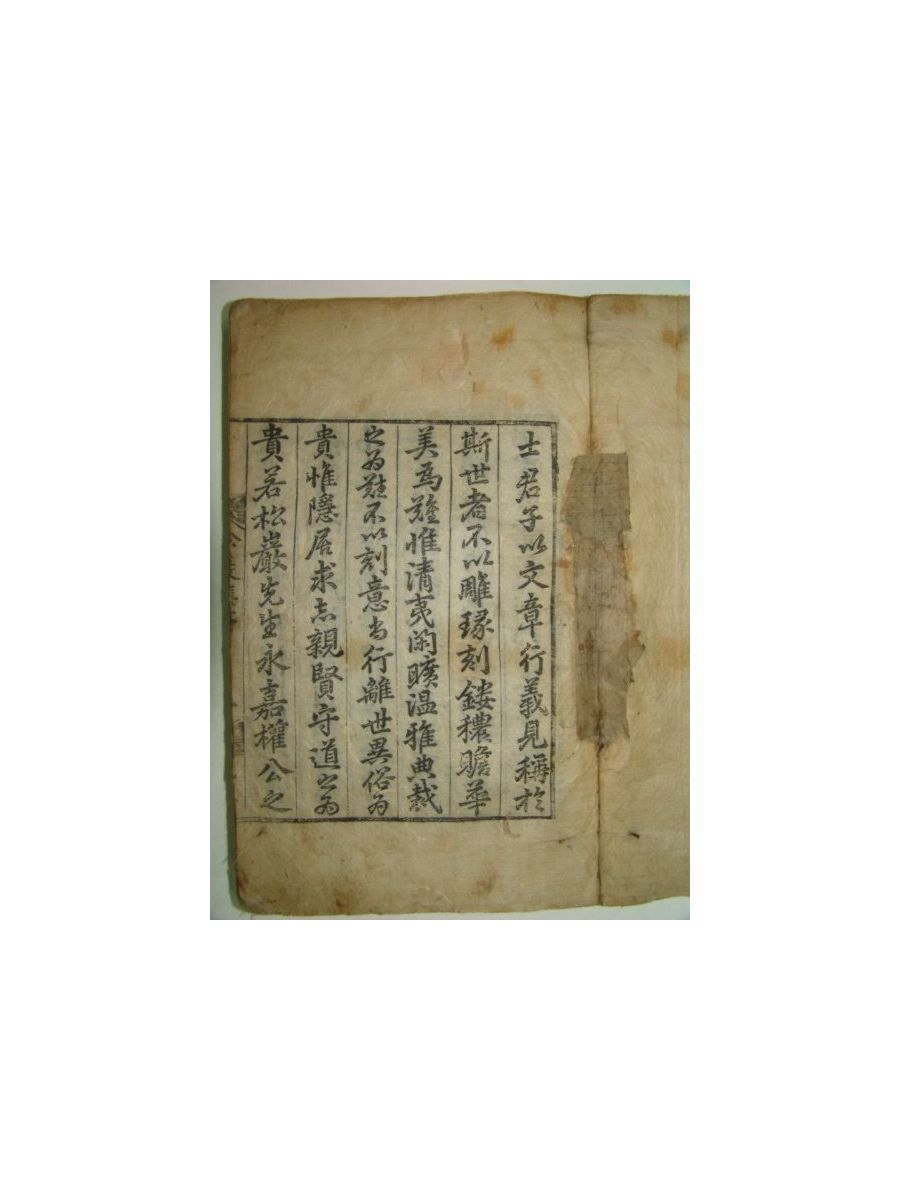 士君子以文章行義見稱於
斯世者不以雕琢刻鏤穠贍華
美爲難惟清夷閑曠温雅典裁
之爲難不以刻意尚行離世異俗爲
貴惟隱居求志親賢守道之爲
貴若松巖先生永嘉權公之